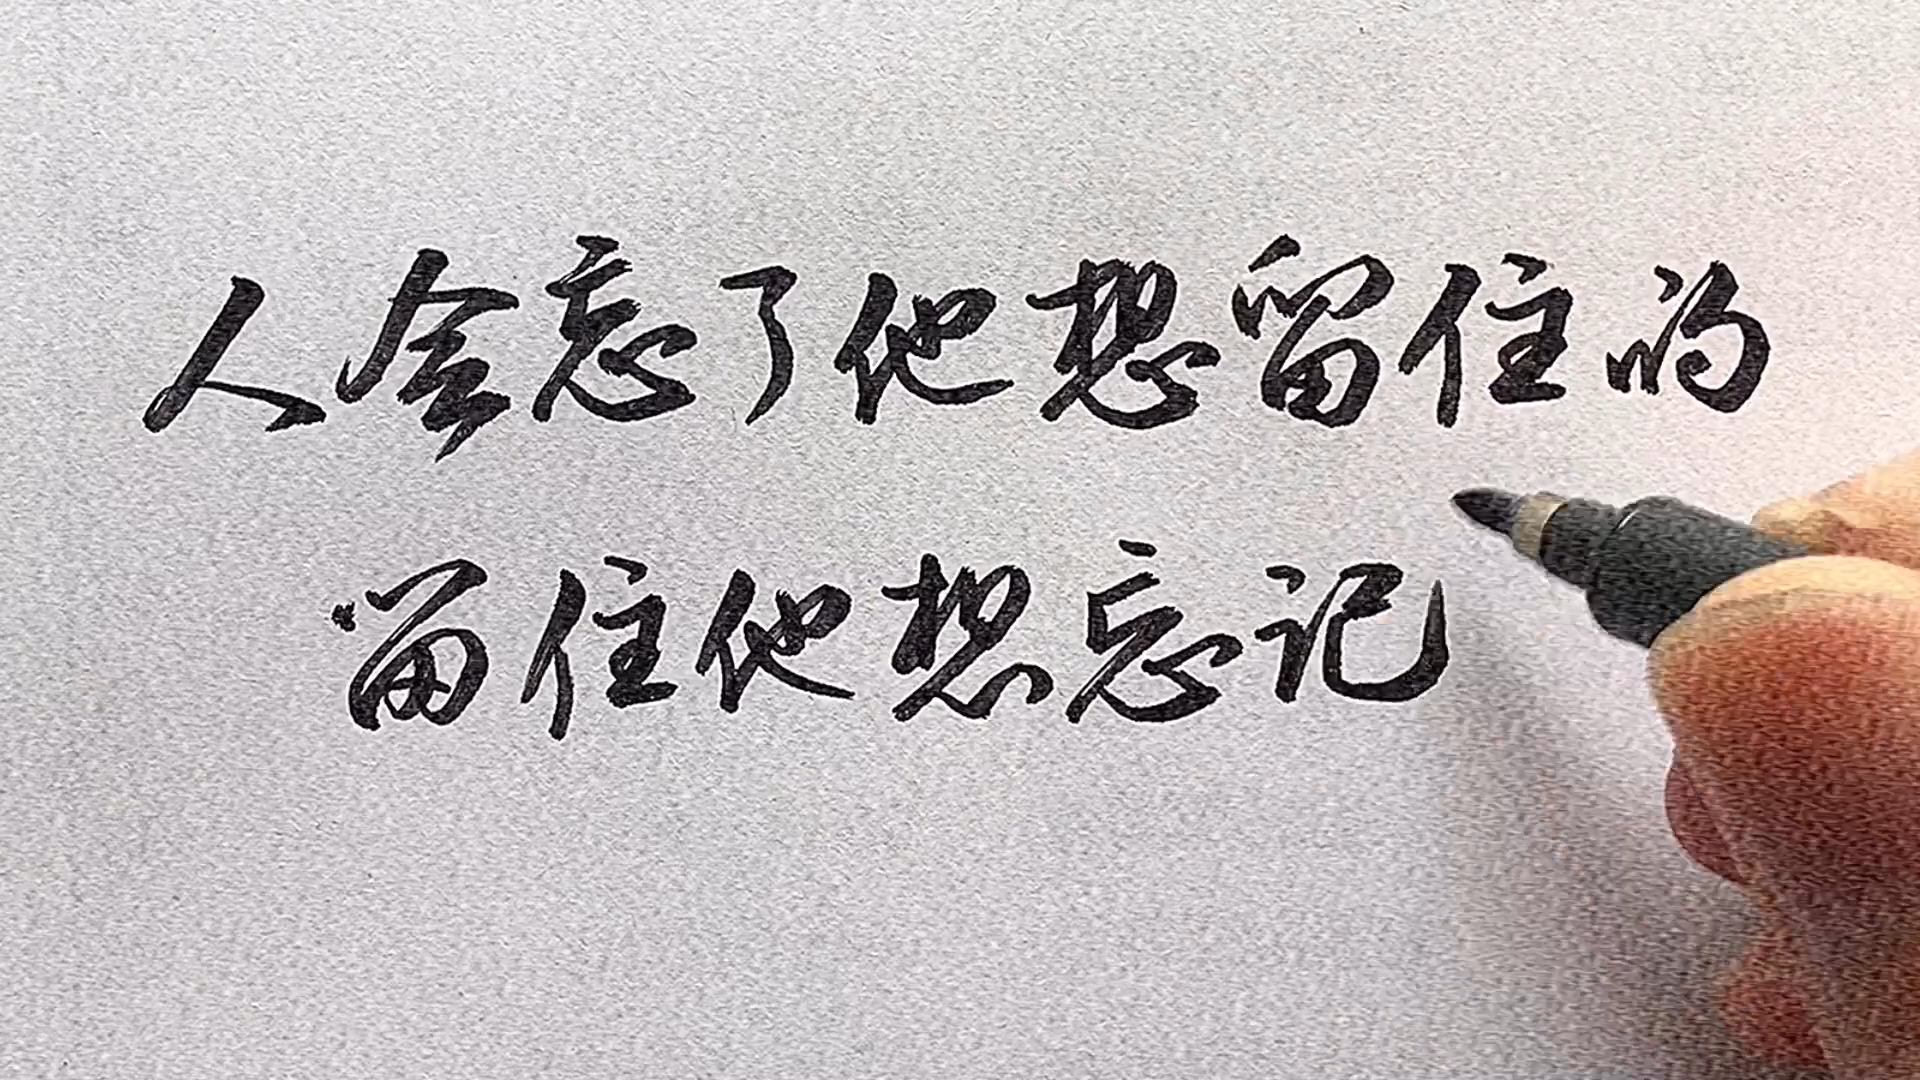 人会忘了他想留住的
留住他想忘记